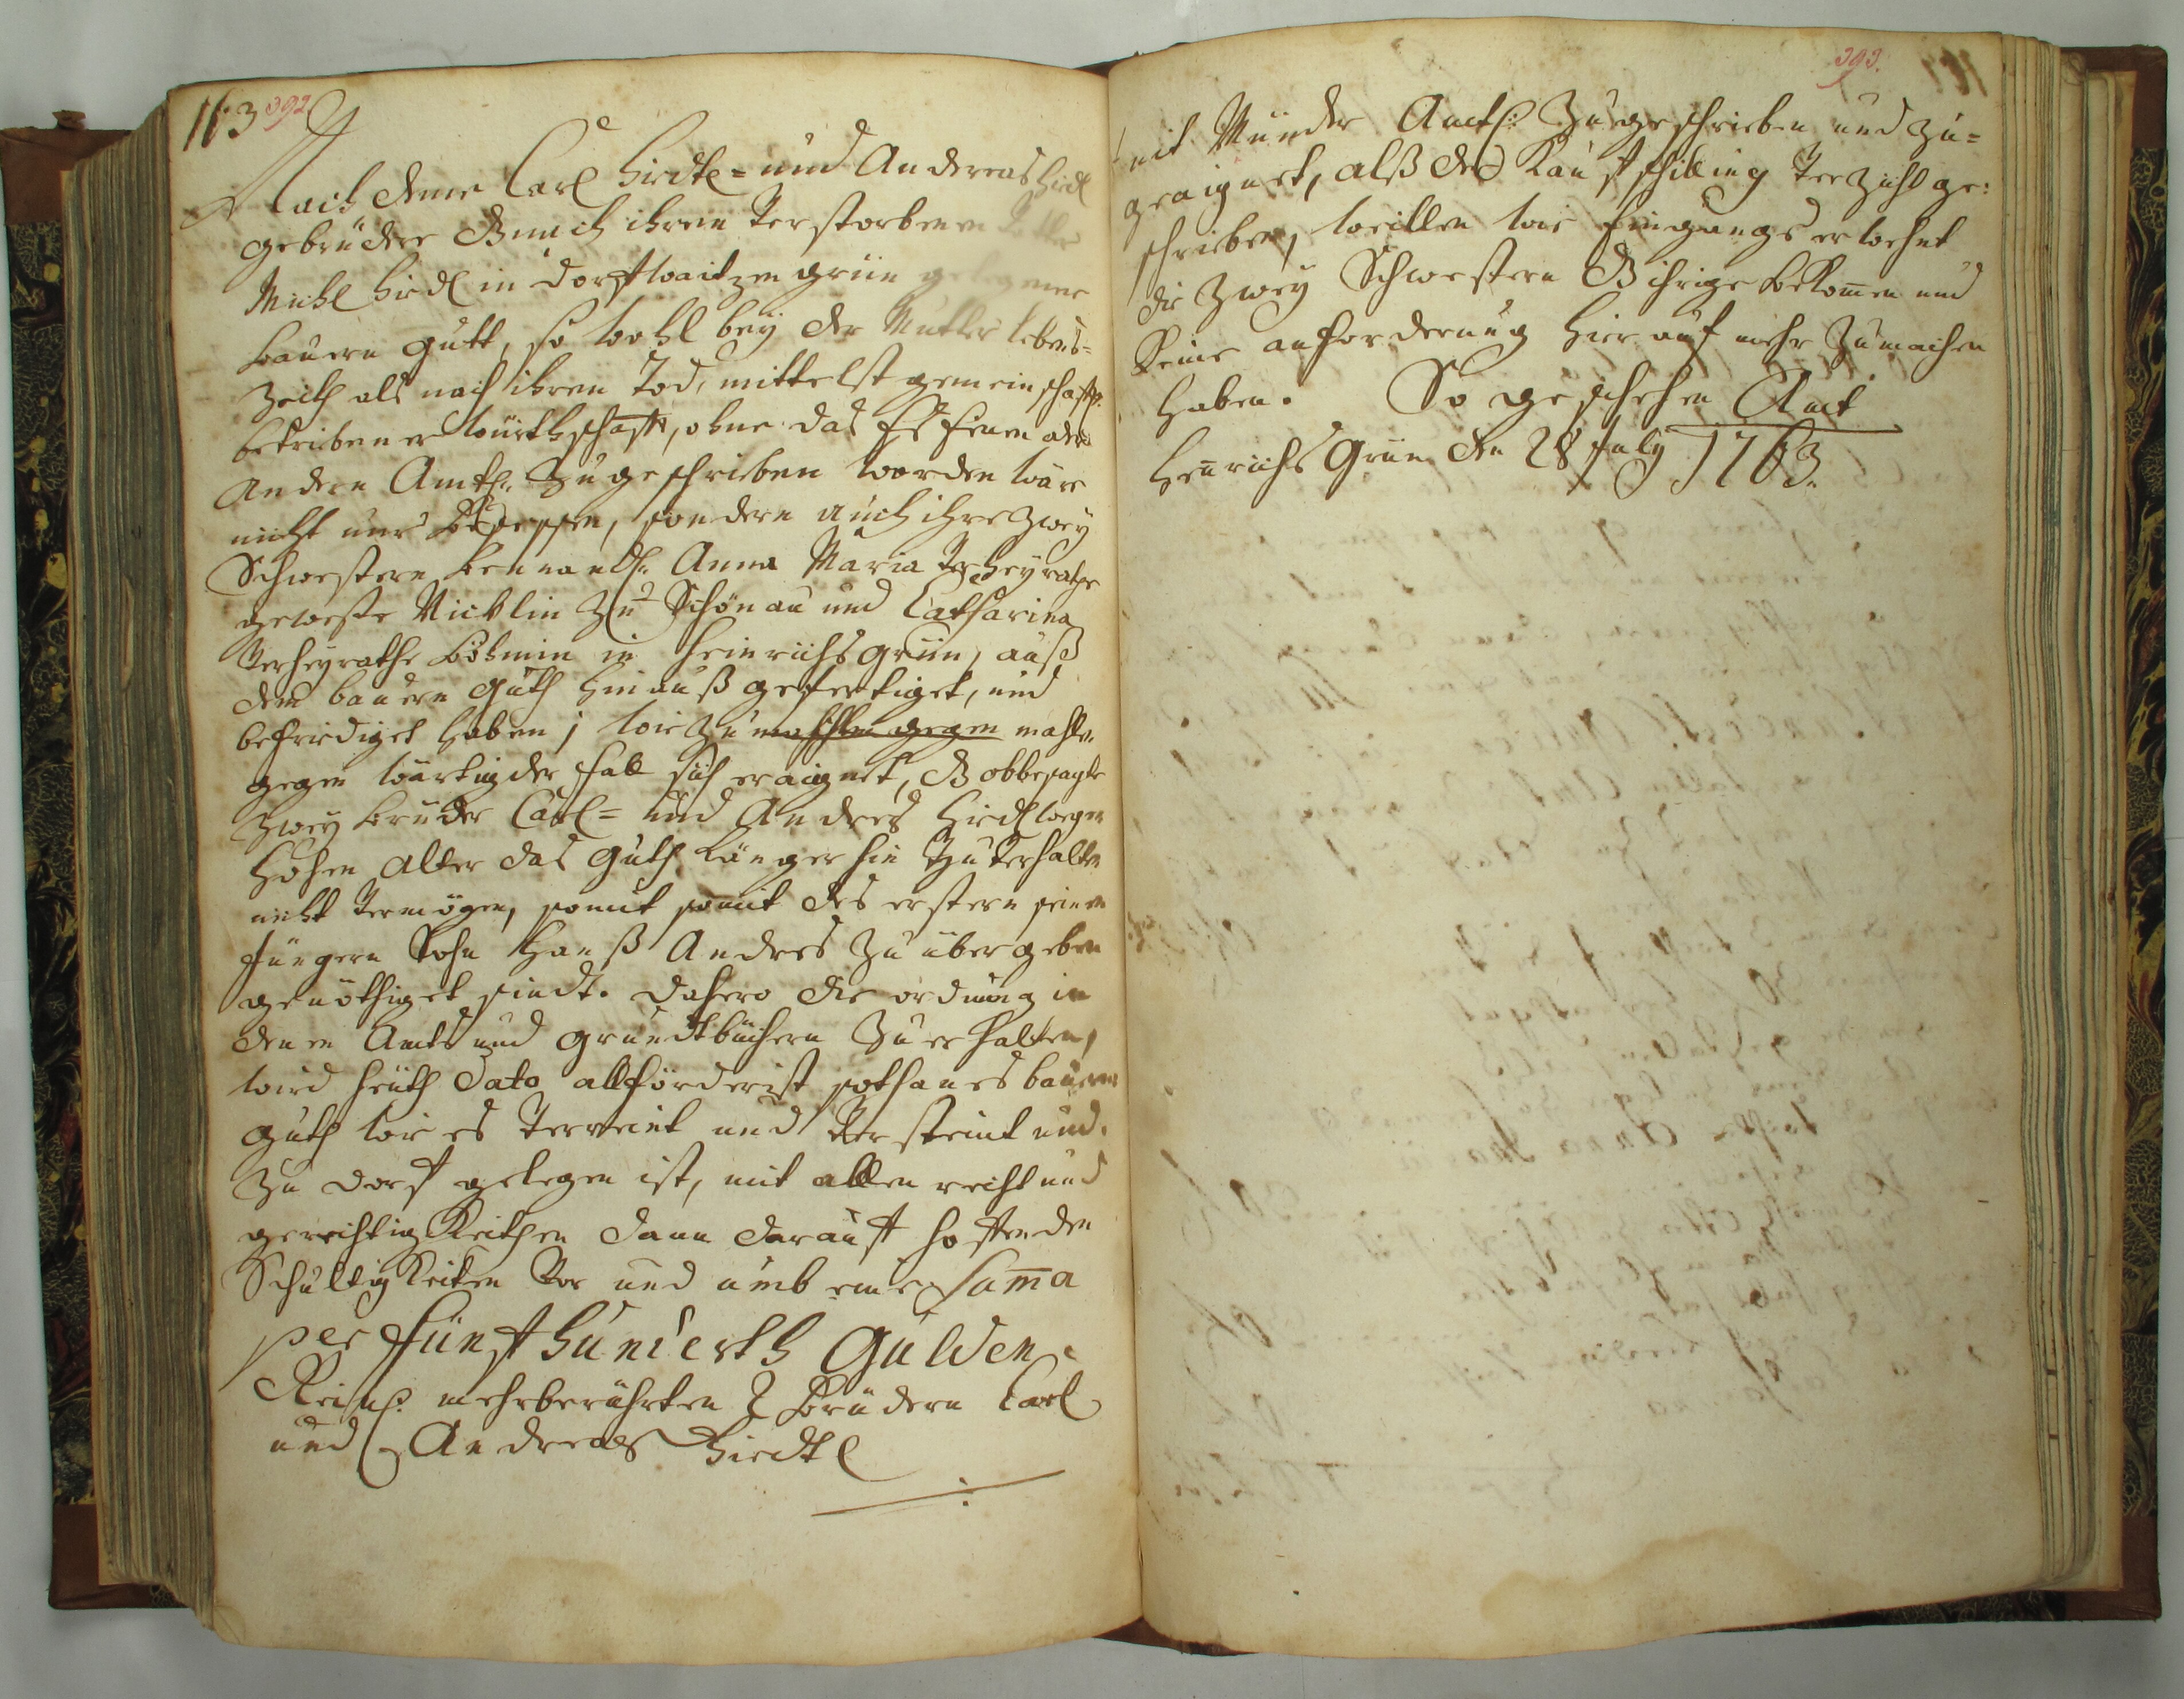 163 392
Nach deme Carl Hirdtl= und Andereas Hirdl
gebrüdere dz nach ihrem verstorbenen Vatter
Michl Hirdl in dorf Waitzengrün gelegene
bauern gutt, so wohl bey der Mutter lebens=
Zeith als nach ihren Tod, mittelst gemeinschaftl:
betribener würthschafft, ohne das Es Einen oder
andern Ambtl: zugeschrieben worden wäre
nicht nur besessen, sondern auch ihre zwey
Schwestern benandl: Anna Maria verheyrathe
geweste Nicklin zu Schönau und Catharina
verheyrathe böhmin in Heinrichsgrün, auß
dem bauern guth hinauß gefertiget, und
befriediget haben; wie zumahlen gegen mahlen
gegenwärtig der fall sich eraignet, dz obbesagte
zwey brüder Carl= und Andres Hirdl wegen
hohen alter das guth länger hin zu verhalten
nicht vermögen, somit somit des erstern seinen
Jüngern Sohn Hanß Andres zu übergeben
genöthiget sindt. dahero die ordnung in
denen Ambts und grundtbüchern zu erhalten,
wird heüth dato allforderist sothanes bauern
guth wie es verreint und versteint und
zu dorf gelegen ist, mit allen recht und
gerechtigkeithen dann darauf haftenden
Schuldigkeiten vor und umb eine Suma
per Fünfhunderth Gulden
Reinl: mehrberührten 2 brüdern Carl
und Andreas Hirdtl
393.
mit Minder Ambtl: zugeschrieben und zu=
geaignet, alß der Kaufschilling verzicht ge:
schrieben, weillen wie Eingangs erwehnt
die zwey Schwestern dz ihrige bekomen und
keine anforderung hierauf mehr zumachen
haben. So geschehen Ambt
Henrichsgrün den 28 July 1763.